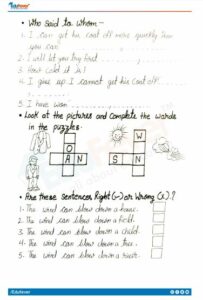 Edufever
• Who Said to Whom –
1. I can get his coat off more quickly than
you can
2. I will let you try first
3. How cold it is!
4. I give up I cannot get his coat off.
5. I have won
• Look at the pictures and Complete the words
in the puzzles.
W
O
A N
S N
N
• Are these sentences Right (✓) or Wrong (x).?
1. The wind can blow down a house.
2. The wind can blow down a field.
3. The wind can blow down a child.
4. The wind can blow down a tree.
5. The wind can blow down a river.
/Edufever